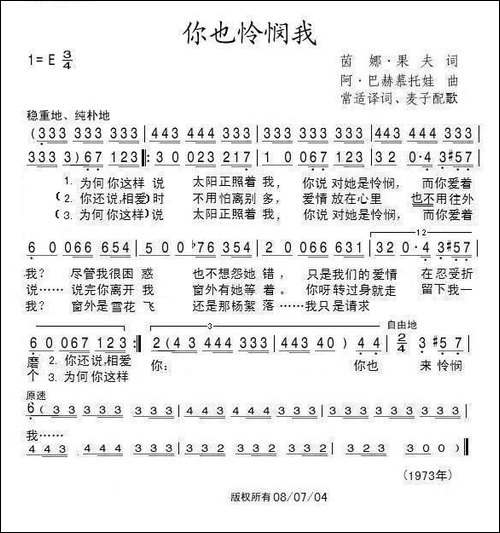 你也怜悯我
1=E 3/4
茵娜·果夫 词
阿·巴赫慕托娃 曲
常适译词、麦子配歌
稳重地、纯朴地
(333 333 333 | 443 444 444 | 333 333 333 | 443 444 444 |
333 3)67 123 |: 3 0 023 217 | 1 0 067 123 | 32 0·4 3#57 |
1. 为何你这样 说 太阳正照着 我, 你说 对她是怜悯, 而你爱着
(2. 你还说,相爱)时 不用怕离别 多, 爱情 放在心里 也不用往外
(3. 为何你这样)说 太阳正照着 我, 你说 对她是怜悯, 而你爱着
12
6 0 066 654 | 5 0 0♭76 354 | 2 0 066 631 | 32 0·4 3#57 |
我? 尽管我很困 惑 也不想怨她 错, 只是我们的爱情 在忍受折
说…… 说完你离开 我 窗外有她等 着。 你呀转过身就走 留下我一
我? 窗外是雪花 飞 还是那杨絮 落…… 我只是请求
3
自由地
6 0 067 123 :| 2(43 444 444 | 333 333 333 | 40) 44 | 2/4 3 #57 |
磨 2. 你还说,相爱 你: 你也 来怜悯
个 3. 为何你这样
原速
6(33 333 333 | 333 333 333 | 443 443 443 | 333 333 333 |
我……
443 443 443 | 332 332 332 | 332 323 323 | 300 )‖
(1973年)
版权所有 08/07/04